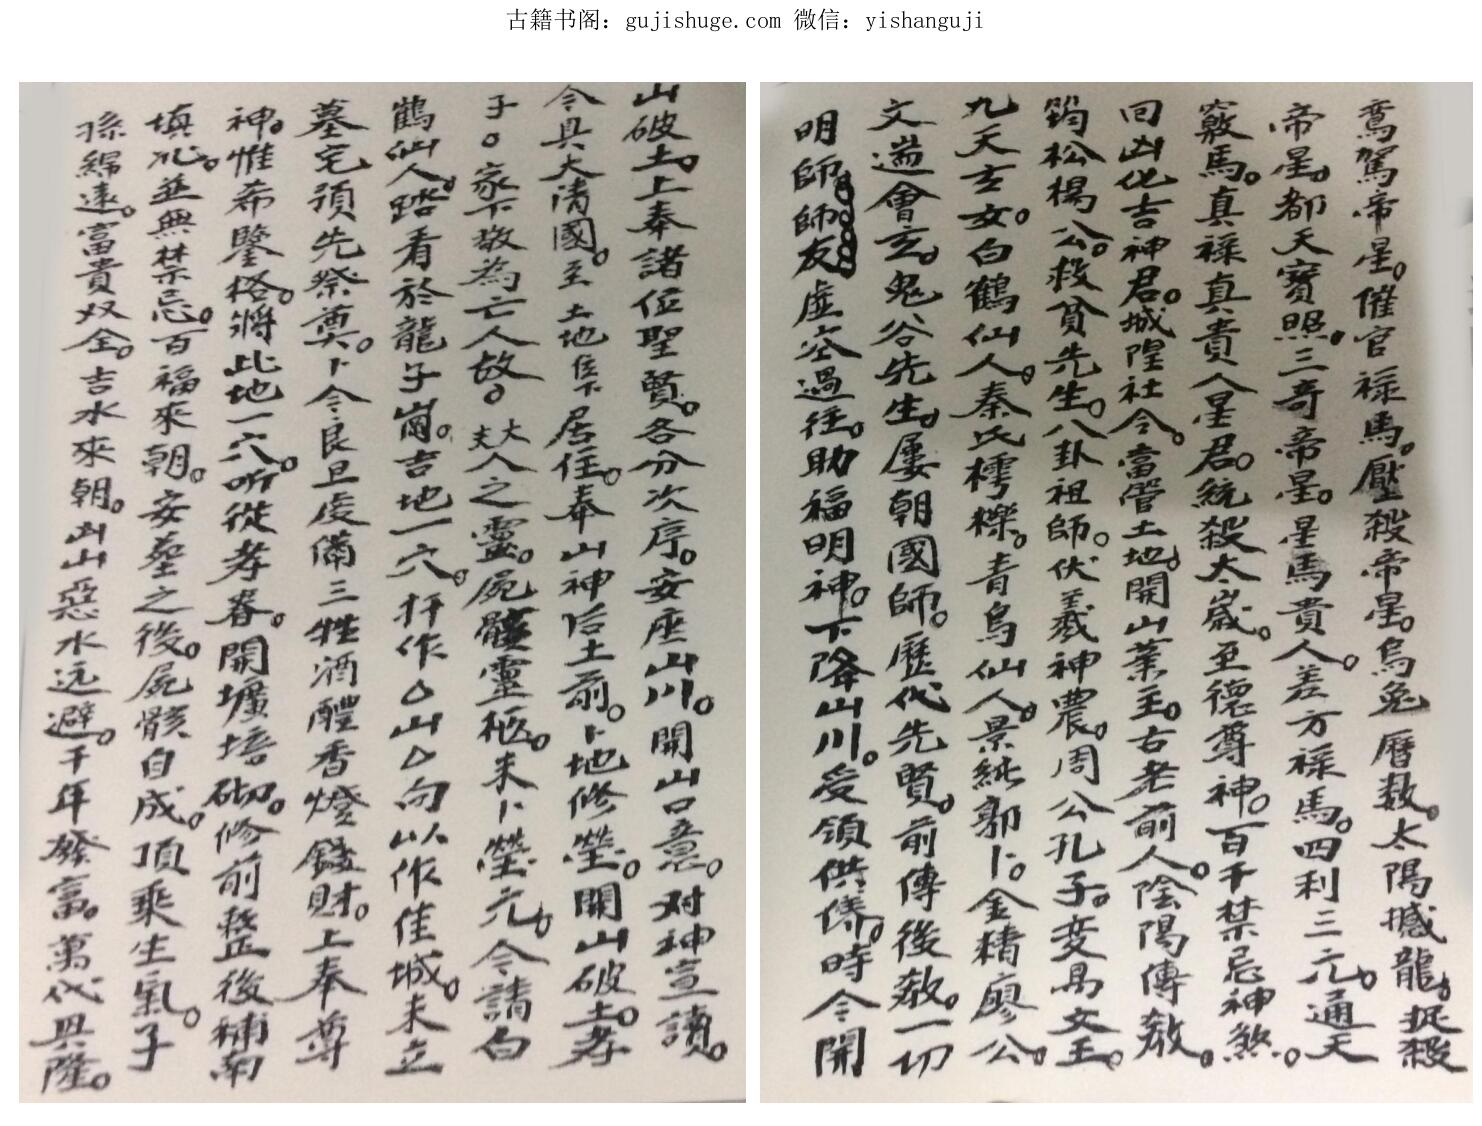 古籍书阁：gujishuge.com 微信：yishanguji
鸞駕帝星。催官禄馬。壓殺帝星。烏兔曆数。太陽撼龍。捉殺
帝星。都天寶照。三奇帝星。星馬貴人。差方禄馬。四利三元。通天
竅馬。真禄真貴人星君。統殺太歲。至德尊神。百千禁忌神煞。
回凶化吉神君。城隍社令。當管土地。開山業主。古老前人。陰陽傳教。
筠松楊公。救貧先生。八卦祖師。伏羲神農。周公孔子。变昜文王。
九天玄女。白鶴仙人。秦氏樗櫟。青烏仙人。景純郭卜。金精廖公。
文遄會玄。鬼谷先生。屡朝國師。歷代先賢。前傳後教。一切
明師。師友虚空過往。助福明神。下降山川。受領供俻。時令開
山破土。上奉諸位聖賢。各分次序。安座山川。開山口意。对神宣讀。
今具大清國。至 土地住下居住。奉山神后土前。卜地修塋。開山破土。孝
子。家下敬為亡人故。夫大人之靈。屍骸靈柩。未卜塋穴。今請白
鶴仙人。踏看於龍子崗。吉地一穴。扦作△山△向以作佳城。未立
墓宅須先祭奠。卜今良旦虔備三牲酒醴香燈錢財。上奉尊
神。惟希鑒格。將此地一穴。听從孝眷。開壙塝砌。修前整後補南
填北。並無禁忌。百福來朝。安塟之後。屍骸自成。頂乘生氣。子
孫綿遠。富貴双全。吉水來朝。凶山惡水远避。千年發富。萬代興隆。